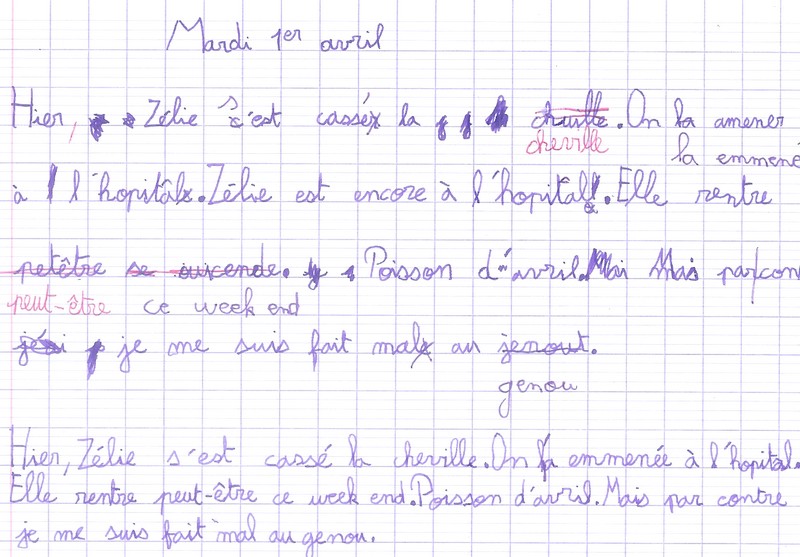 Mardi 1er avril
Hier, Zélie s'est cassé la chuille. On la amener
cheville la emmené
à l'hopital. Zélie est encore à l'hopital. Elle rentre
petêtre se ouicende. Poisson d'avril. Mai Mais par con
peut-être ce week end
je me suis fait mal au jenout.
genou
Hier, Zélie s'est cassé la cheville. On l'a emmenée à l'hopital.
Elle rentre peut-être ce week end. Poisson d'avril. Mais par contre
je me suis fait mal au genou.